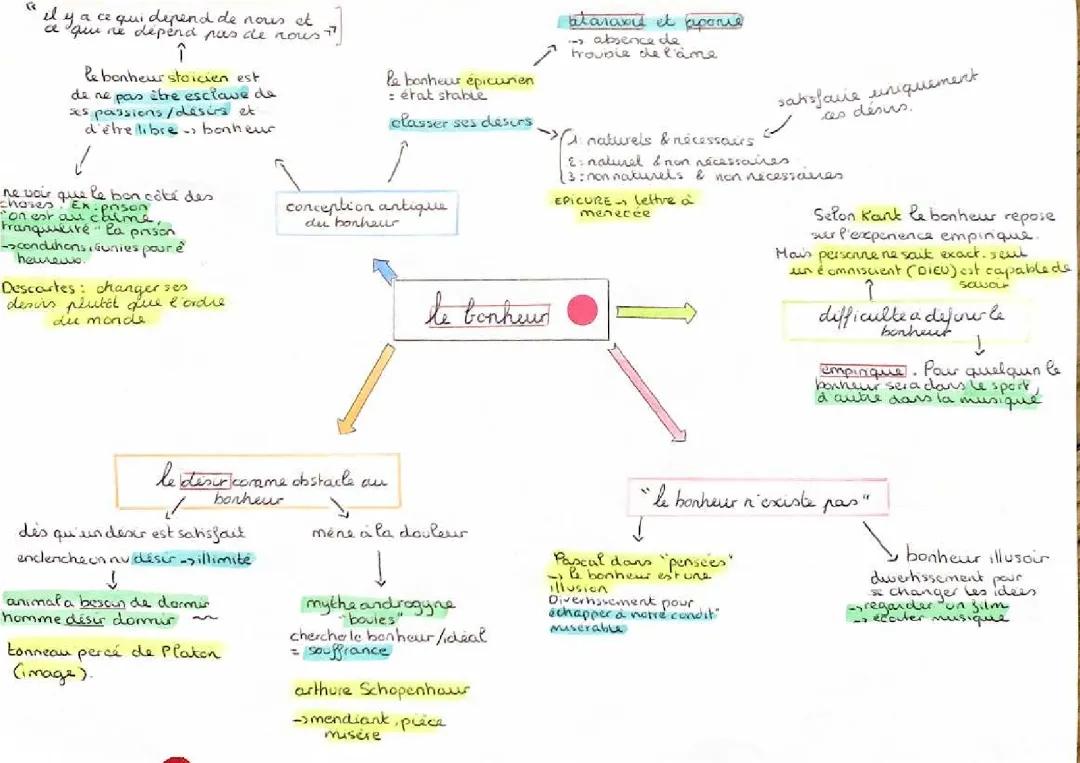 "il y a ce qui dépend de nous et
ce qui ne dépend pas de nous"
le bonheur stoicien est
de ne pas être esclave de
ses passions/désirs et
d'être libre -> bonheur
ne voir que le bon côté des
choses. Ex: prison
"on est au calme,
tranquillité" la prison
-> conditions réunies pour ê
heureux.
Descartes: changer ses
désirs plutôt que l'ordre
du monde
conception antique
du bonheur
le bonheur épicurien
= état stable
classer ses désirs
ataraxie et aponie
-> absence de
trouble de l'âme
1: naturels & nécessairs
2: naturel & non nécessaires
3: non naturels & non nécessaires
satisfaire uniquement
ces désirs.
EPICURE -> lettre à
menecée
le bonheur
Selon Kant le bonheur repose
sur l'expérience empirique.
Mais personne ne sait exact. seul
un ê omniscient (DIEU) est capable de
savoir
difficulté à définir le
bonheur
empirique. Pour quelqun le
bonheur sera dans le sport,
d'autre dans la musique
le désir comme obstacle au
bonheur
dès qu'un désir est satisfait
enclenche un nv désir -> illimité
animal a besoin de dormir
homme désir dormir
tonneau percé de Platon
(image).
mène à la douleur
mythe androgyne
"boules"
cherche le bonheur/idéal
= souffrance
arthure Schopenhaur
-> mendiant, pièce
misère
"le bonheur n'existe pas"
Pascal dans "pensées"
-> le bonheur est une
illusion
Divertissement pour
échapper à notre condit°
misérable
bonheur illusoir
divertissement pour
se changer les idées
-> regarder un film
-> écouter musique